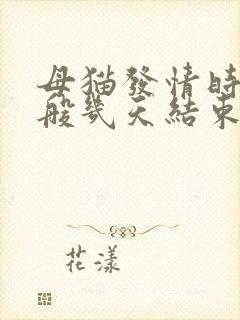 母猫發情時
般幾天結束
花漾